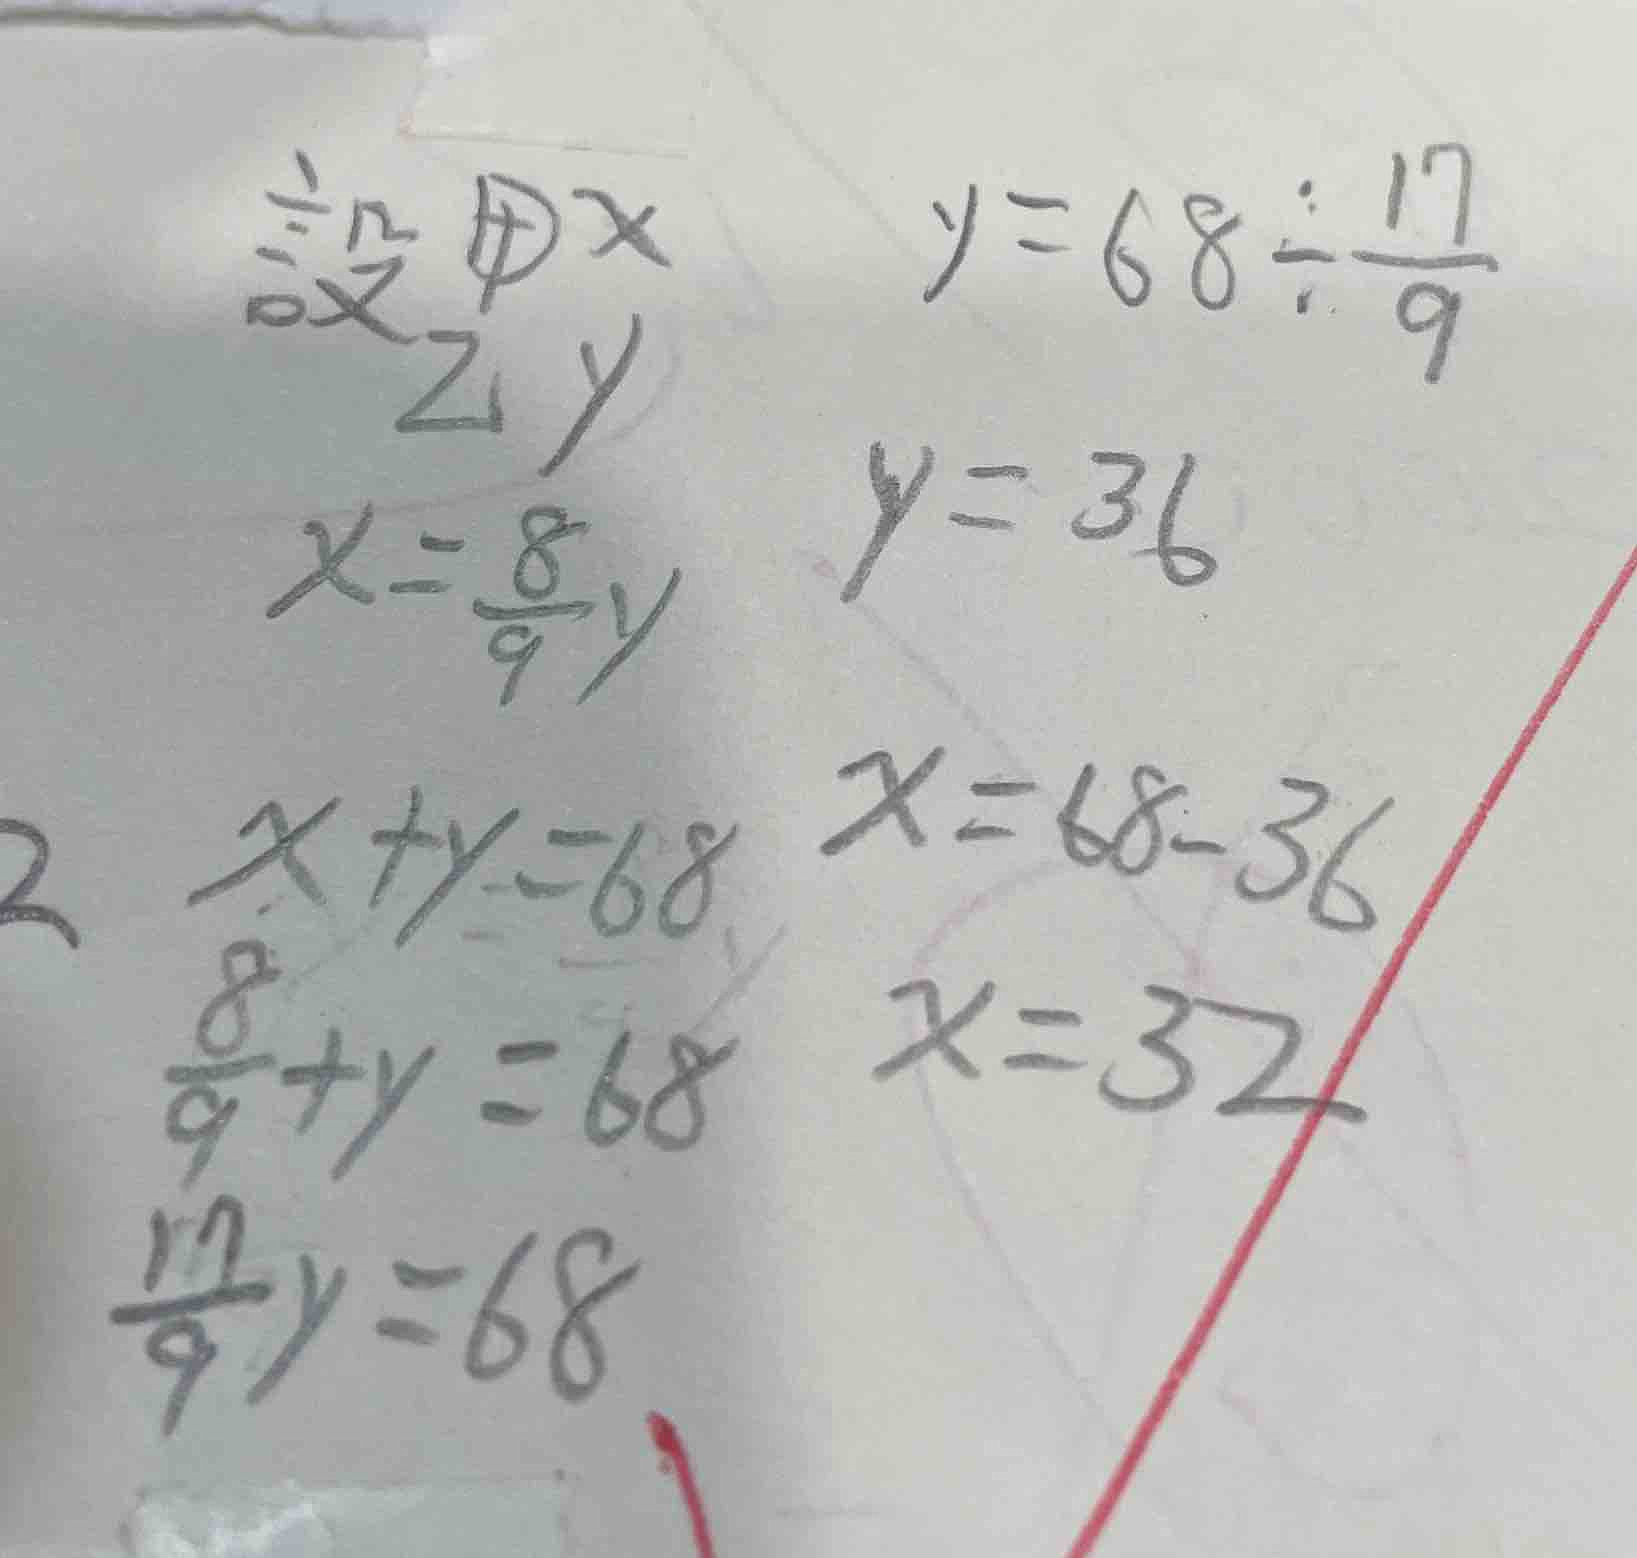 設甲x
乙 y
x=8/9 y
x+y=68
8/9+y=68
17/9 y=68
y=68÷17/9
y=36
x=68-36
x=32
2